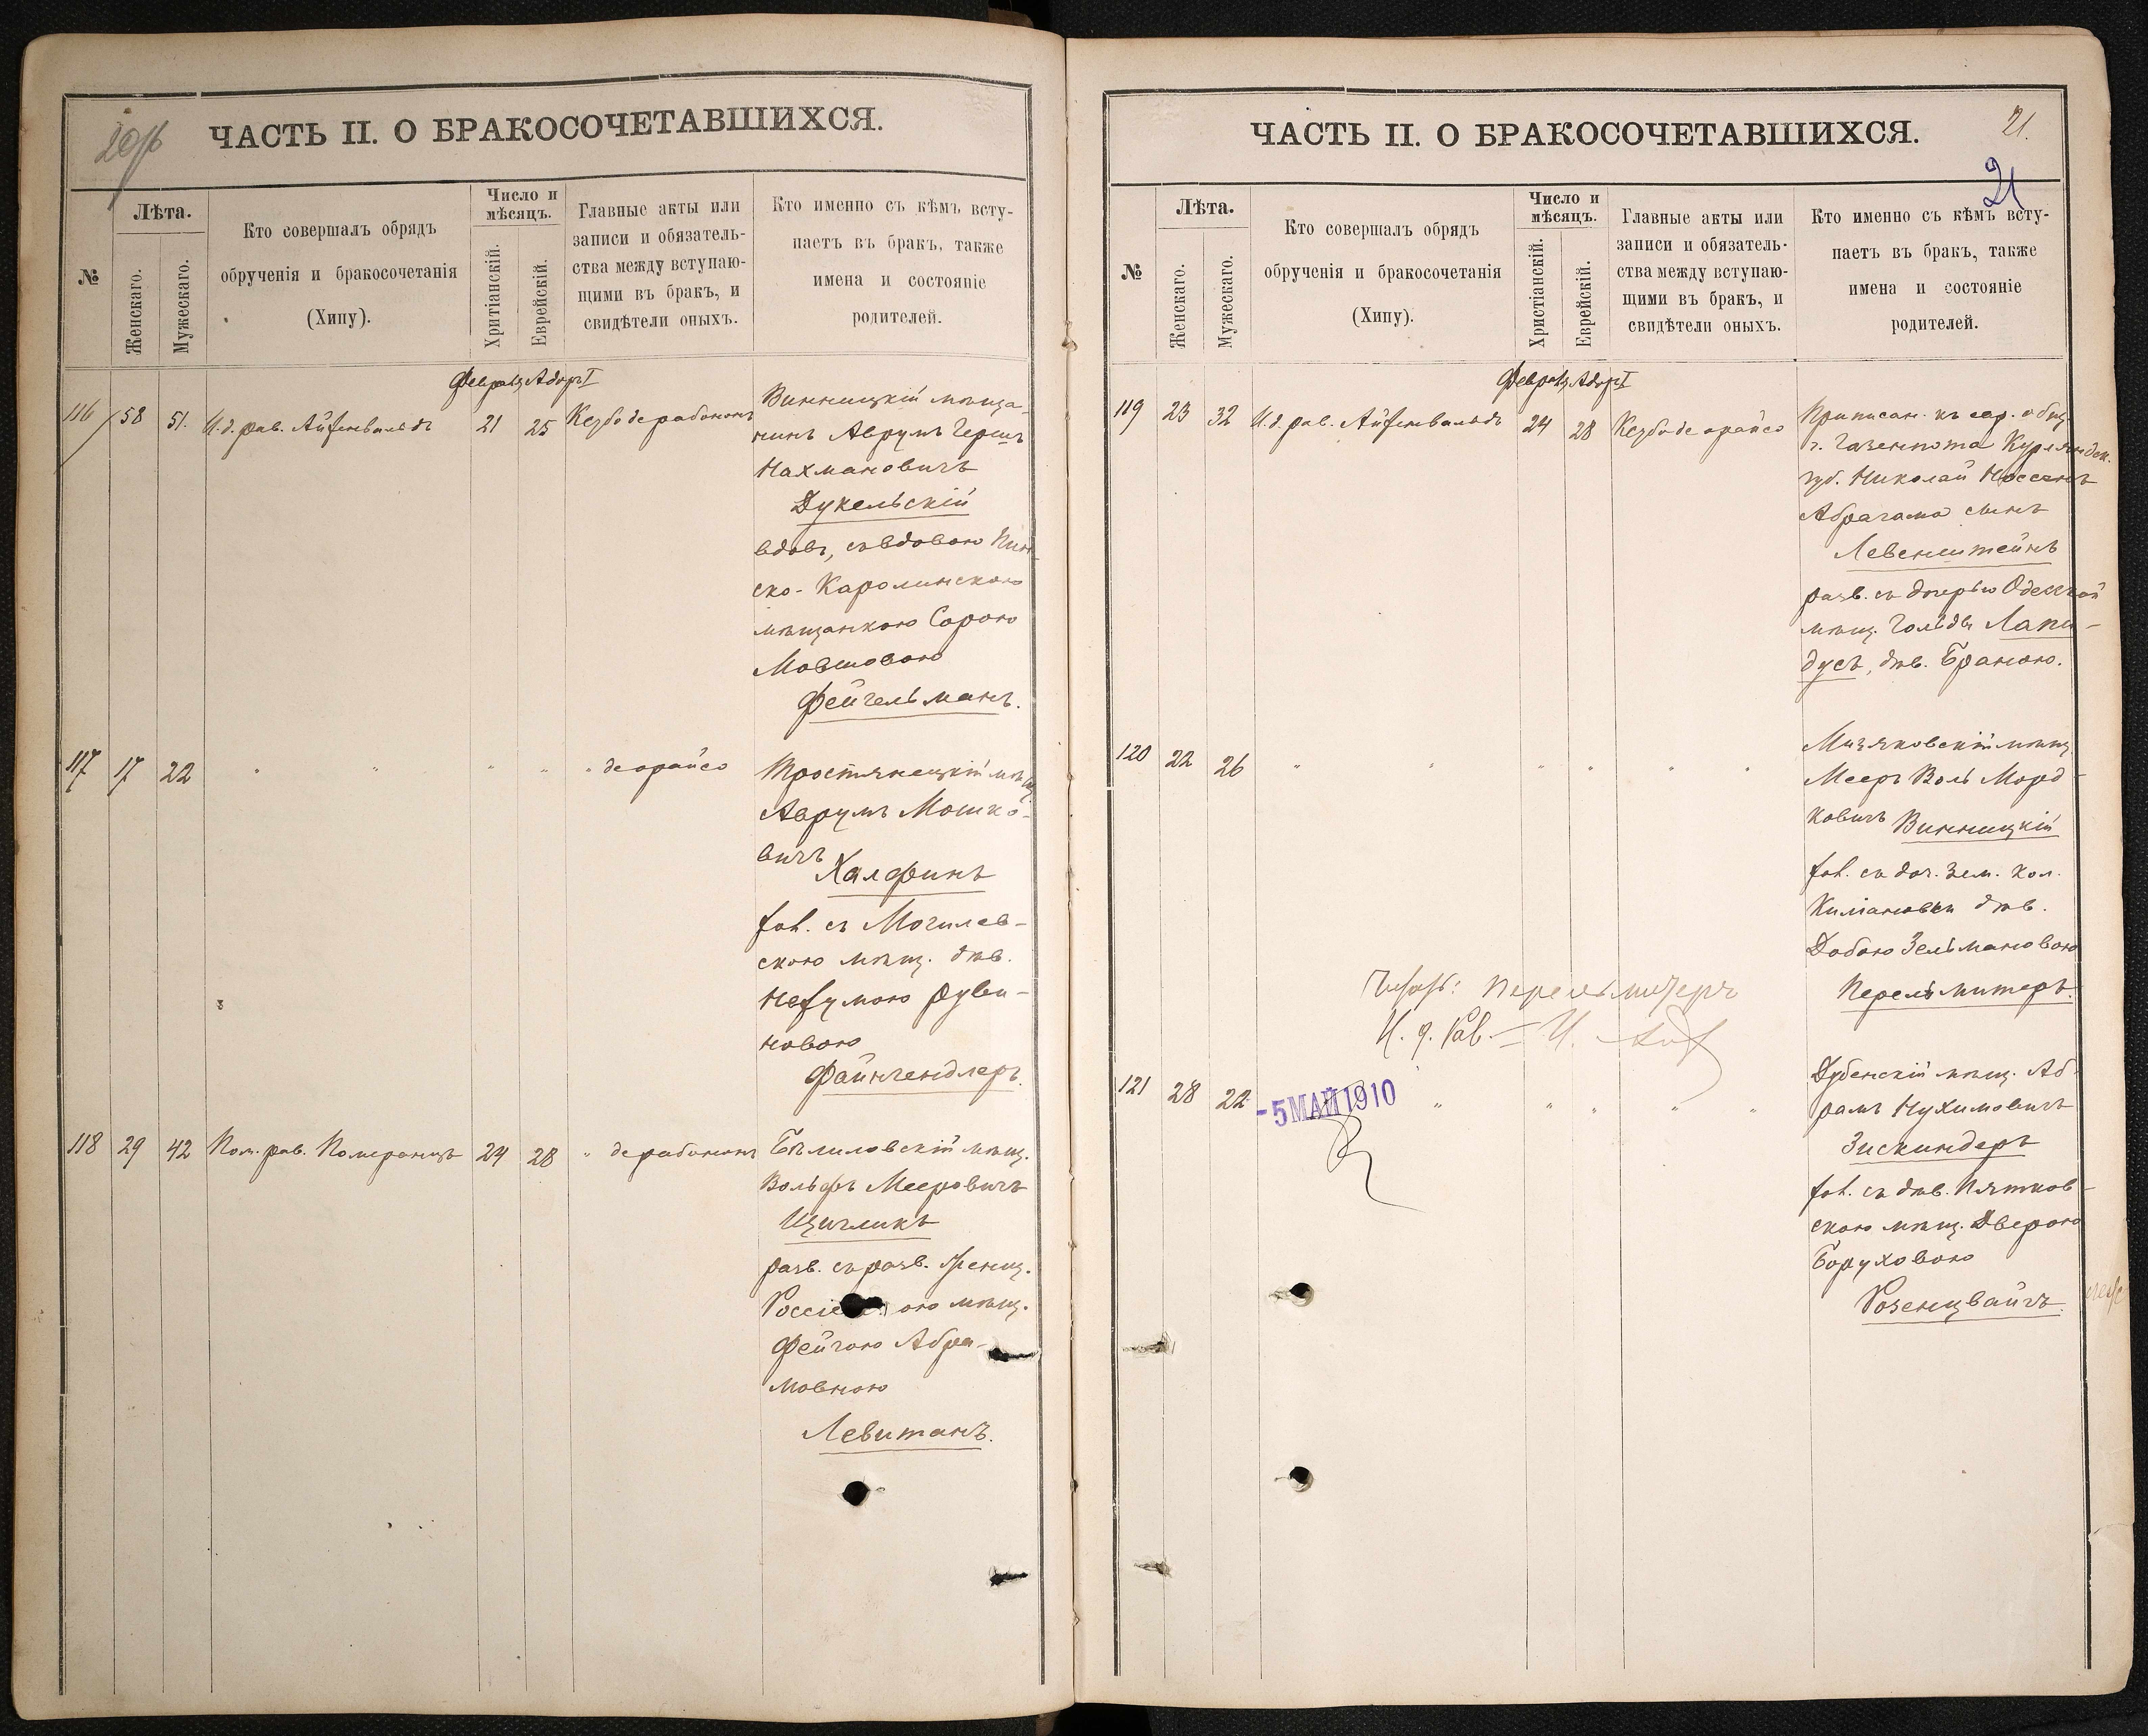 20об
ЧАСТЬ II. О БРАКОСОЧЕТАВШИХСЯ.
№
Лѣта.
Женскаго.
Мужескаго.
Кто совершалъ обрядъ
обрученія и бракосочетанія
(Хипу).
Число и
мѣсяцъ.
Хритіанскій.
Еврейскій.
Главные акты или
записи и обязатель-
ства между вступаю-
щими въ бракъ, и
свидѣтели оныхъ.
Кто именно съ кѣмъ всту-
паетъ въ бракъ, также
имена и состояніе
родителей.
Адоръ I
116 58 51. И.д. рав. Айзенвальдъ 21 25 Кезбо де рабононъ
Винницкій мѣща-
нинъ Аврумъ Гершъ
Нахмановичъ
Дукельскій
вдов., съ вдовою Пин-
ско-Каролинскою
мѣщанкою Сорою
Мовшовою
Фейгельманъ.
117 17 22 " " " " " де орайсо
Тростянецкій мѣщ.
Аврумъ Мошко-
вичъ
Халфинъ
хол. съ Могилев-
скою мѣщ. дѣв.
Нехумою Руви-
новою
Файнгендлеръ.
118 29 42 Пом. рав. Померанцъ 24 28 " де рабононъ
Бѣлиловскій мѣщ.
Вольфъ Мееровичъ
Щигликъ
разв. съ разв.
ою мѣщ.
Фейгою Абра-
мовною
Левитанъ.
21.
21
ЧАСТЬ II. О БРАКОСОЧЕТАВШИХСЯ.
№
Лѣта.
Женскаго.
Мужескаго.
Кто совершалъ обрядъ
обрученія и бракосочетанія
(Хипу).
Число и
мѣсяцъ.
Христіанскій.
Еврейскій.
Главные акты или
записи и обязатель-
ства между вступаю-
щими въ бракъ, и
свидѣтели оныхъ.
Кто именно съ кѣмъ всту-
паетъ въ бракъ, также
имена и состояніе
родителей.
Адоръ I
119 23 32 И.д. рав. Айзенвальдъ 24 28 Кезбо де орайсо
Приписан. къ евр. общ.
г. Газенпота Курляндск.
губ. Николай Носсенъ
Абрагама сынъ
Левенштейнъ
разв. съ дочерью Одесской
мѣщ. Гольды Лапи-
дусъ, дѣв. Браною.
120 22 26 " " " " " "
Мизяковскій мѣщ.
Мееръ Воль Морд-
ковичъ Винницкій
хол. съ доч. зем. кол.
дѣв.
Добою Зельмановою
Перельмитеръ.
Перельмутеръ
И. д. Рав.
121 28 22 " " " " "
-5 МАЙ 1910
Дубенскій мѣщ. Аб-
рамъ Нухимовичъ
Зискиндеръ
хол. съ дѣв. Пятков-
скою мѣщ. Дверою
Боруховою
Розенцвайгъ.